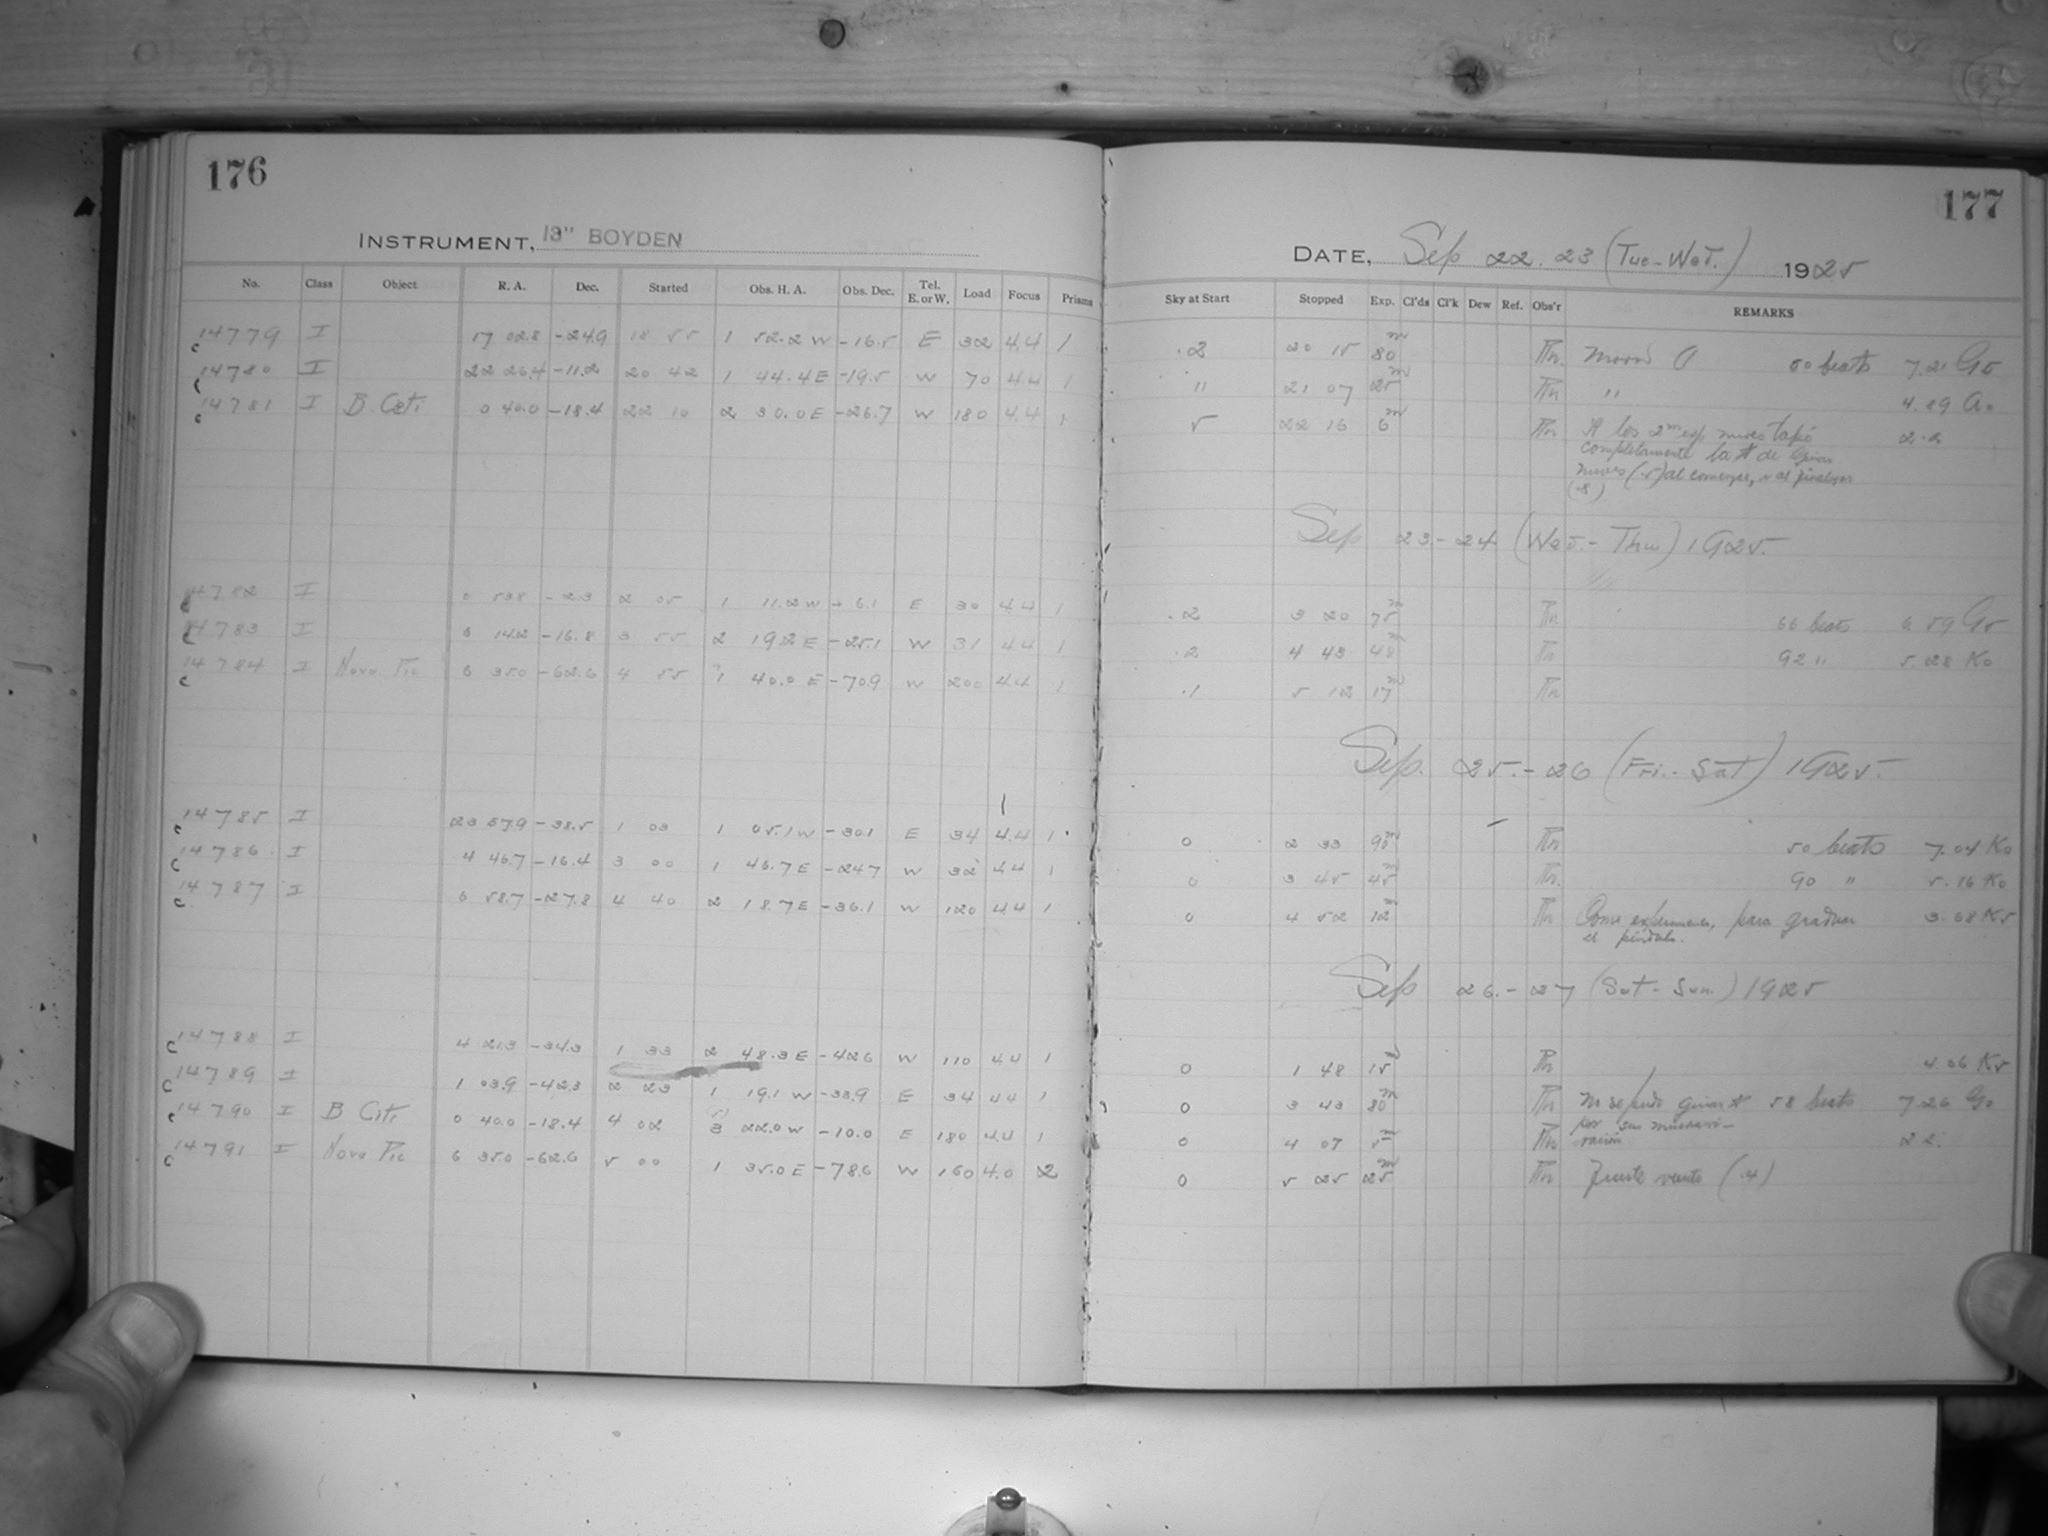 176
INSTRUMENT, 13" BOYDEN
No. Class Object R. A. Dec. Started Obs. H. A. Obs. Dec. Tel. E. or W. Load Focus Prisms
14779 I 17 02.8 -24.9 18 55 1 52.2 W -16.5 E 32 4.4 1
14780 I 22 26.4 -11.2 20 42 1 44.4 E -19.5 W 70 4.4 1
14781 I B Ceti 0 40.0 -18.4 22 10 2 30.0 E -26.7 W 180 4.4 1
14782 I 0 53.8 -2.3 2 05 1 11.2 W + 6.1 E 30 4.4 1
14783 I 6 14.2 -16.8 3 55 2 19.2 E -25.1 W 31 4.4 1
14784 I Nova Pic 6 35.0 -62.6 4 55 1 40.0 E -70.9 W 200 4.4 1
14785 I 23 57.9 -38.5 1 03 1 05.1 W -30.1 E 34 4.4 1
14786 I 4 46.7 -16.4 3 00 1 46.7 E -24.7 W 32 4.4 1
14787 I 6 58.7 -27.8 4 40 2 18.7 E -36.1 W 120 4.4 1
14788 I 4 21.3 -34.3 1 33 2 48.3 E -42.6 W 110 4.4 1
14789 I 1 03.9 -42.3 2 23 1 19.1 W -33.9 E 34 4.4 1
14790 I B Cet 0 40.0 -18.4 4 02 3 22.0 W -10.0 E 180 4.4 1
14791 I Nova Pic 6 35.0 -62.6 5 00 1 35.0 E -78.6 W 160 4.0 2
177
DATE, Sep 22.23 (Tue-Wed.) 1925
Sky at Start Stopped Exp. Cl'ds Cl'k Dew Ref. Obs'r REMARKS
.2 20 15 80m Moon 50 beats 7.21 G5
" 21 07 25m " 4.89
5 22 16 6m A los 2m
completamente la * de
(.5) al comenzar, y al finalizar
(.8)
Sep 23-24 (Wed.-Thu) 1925.
.2 3 20 75m 66 beats 6.59 G5
.2 4 43 48m 92 " 5.28 K0
.1 5 12 17m
Sep. 25.-26 (Fri.-Sat) 1925.
0 2 33 90m 50 beats 7.04 K0
0 3 45 45m 90 " 5.16 K0
0 4 52 12m Como para graduar 3.68 K5
el péndulo.
Sep 26.-27 (Sat-Sun.) 1925
0 1 48 15m 4.06 K5
0 3 43 80m No se pudo guiar * 58 beats 7.26 G0
por su
0 4 07 5m 2.2
0 5 25 25m Fuerte viento (.4)